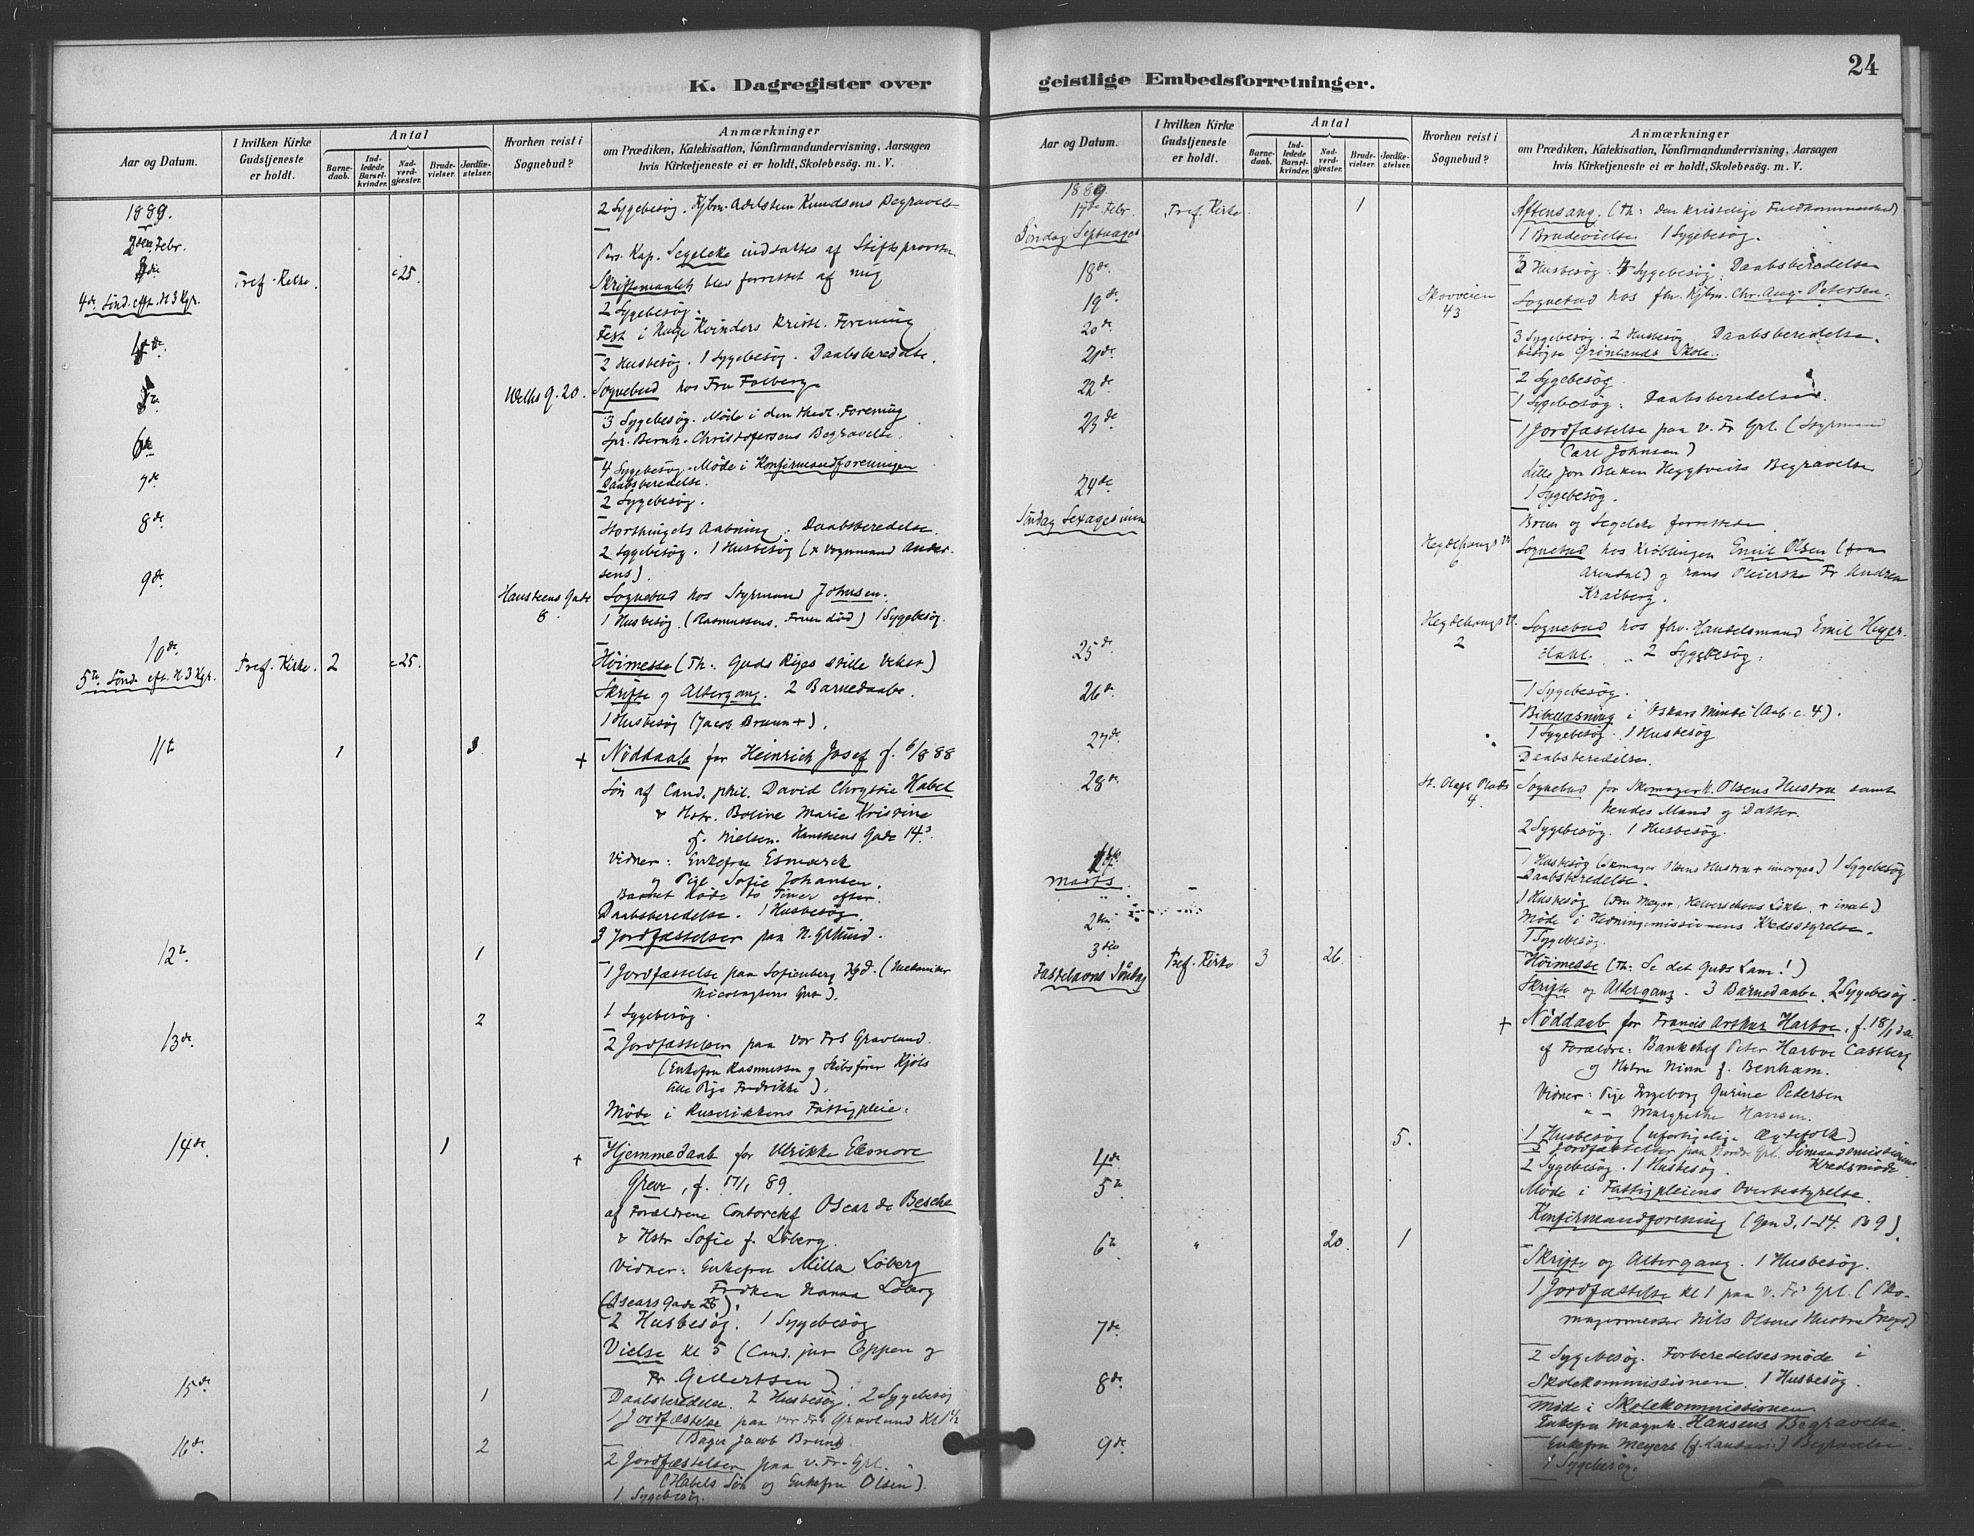 24
K. Dagregister over
Aar og Datum.
I hvilken Kirke Gudstjeneste er holdt.
Antal
Barnedaab.
Indledede Barselkvinder.
Nadverdgjæster.
Brudevielser.
Jordfæstelser.
Hvorhen reist i Sognebud?
Anmærkninger
om Prædiken, Katekisation, Konfirmandundervisning, Aarsagen
hvis Kirketjeneste ei er holdt, Skolebesög. m. V.
1889.
2 Sygebesøg. Kjbm. Adelsteen Knudsens Begravelse
2den Febr.
Pers. Kap. Segelcke indsattes af Stiftsprovsten
3die Tref. Kirke. c 25. Skriftemaalet blev forrettet af mig
4de Sönd. eft. H 3 Kgr.
2 Sygebesøg.
Fest i Unge Kvinders Kristl. Forening
4de 2 Husbesøg. 1 Sygebesøg. Daabsberedelse.
5te Welhs G. 20. Sognebud hos Fru Falberg
3 Sygebesøg. Møde i den theol. Forening
Bernh. Christofersens Begravelse.
6te 4 Sygebesøg. Møde i Konfirmandforeningen
Daabsberedelse.
7de 2 Sygebesøg.
8de Storthingets Aabning. Daabsberedelse.
2 Sygebesøg. 1 Husbesøg (x Vognmand Andersens).
9de Hansteens Gade 8. Sognebud hos Styrmand Johnsen.
1 Husbesøg. (Rasmussens, Fruen död) 1 Sygebesøg.
10de Tref. Kirke. 2 c 25. Höimesse (Th. Guds Riges stille Vekst)
5te Sönd. eft. H 3 Kgr. Skrifte og Altergang. 2 Barnedaabe.
1 Husbesøg (Jacob Bruun +).
11te 1 3 + Nöddaab for Heinrich Josef f. 6/8 88
Sön af Cand. phil. David Chrystie Habel
& Hstr. Boline Marie Kristine
f. Nielsen. Hansteens Gade 14
Vidner: Enkefru Esmarck
og Pige Sofie Johansen.
Barnet døde to Timer efter.
Daabsberedelse. 1 Husbesøg.
3 Jordfæstelser paa N. Grlund.
12te 1 1 Jordfæstelse paa Sofienberg Kgd. (Mechaniker
Nicolaysens Gut).
1 Sygebesøg.
13de 2 2 Jordfæstelser paa Vor Frs Gravlund.
(Enkefru Rasmussen og Skibsfører Kjöls
lille Pige Fredrikke).
Møde i Ruseløkkens Fattigpleie.
14de 1 + Hjemmedaab for Ulrikke Elenore
Greve, f. 17/1 89.
af Forældrene Contorchef Oscar de Besche
& Hstr Sofie f. Löberg.
Vidner: Enkefru Milla Löberg
Fröken Nanna Löberg
(Oscars Gade 28).
2 Husbesøg. 1 Sygebesøg
Vielse Kl 5 (Cand. jur Oppen og
Fr. Gellertsen)
15de 1 Daabsberedelse. 2 Husbesøg. 2 Sygebesøg
1 Jordfæstelse paa Vor Frs Gravlund Kl 1½
(Bager Jacob Bruun)
16de 2 2 Jordfæstelser paa V. Fr. Grl.
(Habels Sön og Enkefru Olsen).
1 Sygebesøg.
geistlige Embedsforretninger.
Aar og Datum.
I hvilken Kirke Gudstjeneste er holdt.
Antal
Barnedaab.
Indledede Barselkvinder.
Nadverdgjæster.
Brudevielser.
Jordfæstelser.
Hvorhen reist i Sognebud?
Anmærkninger
om Prædiken, Katekisation, Konfirmandundervisning, Aarsagen
hvis Kirketjeneste ei er holdt, Skolebesög. m. V.
1889
17de Febr. Tref. Kirke 1 Aftensang. (Th: Den kristelige Fuldkommenhed)
Söndag Septuages. 1 Brudevielse 1 Sygebesøg.
18de 3 Husbesøg. 4 Sygebesøg. Daabsberedelse
19de Skovveien 43 Sognebud hos fhv. Kjbm. Chr. Aug. Petersen.
20de 3 Sygebesøg. 2 Husbesøg Daabsberedelse.
besøgte Grönlands Skole.
21de 2 Sygebesøg
22de 1 Sygebesøg. Daabsberedelse.
23de 1 Jordfæstelse paa V. Fr Grl. (Styrmand
Carl Johnsen)
Lille Jon Bleken Heggtveits Begravelse
1 Sygebesøg.
24de
Söndag Sexagesima Bruun og Segelcke forrettede
Hegdehaugsv. 6 Sognebud hos Kröblingen Emil Olsen (fra
Arendal) og hans Pleierske Fr Andrea
Kraiberg.
Hegdehaugsv. 2 Sognebud hos fhv. Handelsmand Emil Heyerdahl.
2 Sygebesøg.
25de 1 Sygebesøg.
26de Bibellæsning i Oskars Minde (Aab. c. 4).
1 Sygebesøg. 1 Husbesøg
27de Daabsberedelse.
28de St. Olafs Plads 4 Sognebud for Skomager N. Olsens Hustru samt
hendes Mand og Datter.
2 Sygebesøg. 1 Husbesøg.
1ste Marts 1 Husbesøg (Skomager Olsens Hustru + imorges) 1 Sygebesøg
Daabsberedelse.
2den 1 Husbesøg (Fru Meyer, Halvorsens Løkke, + inat)
Møde i Hedningemissionens Kredsstyrelse.
1 Sygebesøg.
3die Tref. Kirke 3 26. Höimesse (Th: Se det Guds Lam!)
Fastelavns Söndag Skrifte og Altergang. 3 Barnedaabe. 2 Sygebesøg.
+ Nöddaab for Francis Arthur Harboe, f. 18/1 d.a.
af Forældre: Bankchef Peter Harboe Castberg
og Hstru Nina f. Benham.
Vidner: Pige Ingeborg Gurine Pedersen
" - Margrethe Hansen.
1 Husbesøg (ufortigelige Ægtefolk)
4de 5. 5 Jordfæstelser paa Nordre Grl. Sömandsmissionens Kredsmöde
2 Sygebesøg. 1 Husbesøg.
5te Møde i Fattigpleiens Overbestyrelse.
Konfirmandforening (Gen 3, 1-14. B 9).
6te " 20. 1 Skrifte og Altergang. 1 Husbesøg.
1 Jordfæstelse Kl 1 paa V. Frs Grl. (Skomagermester
Nils Olsens Hustru)
7de 2 Sygebesøg. Forberedelsesmöde i
Skolekommissionen. 1 Husbesøg.
8de Møde i Skolekommissionen
Enkefru Magnh. Hansens Begravelse.
9de Enkefru Meyers Begravelse.
1 Sygebesøg.